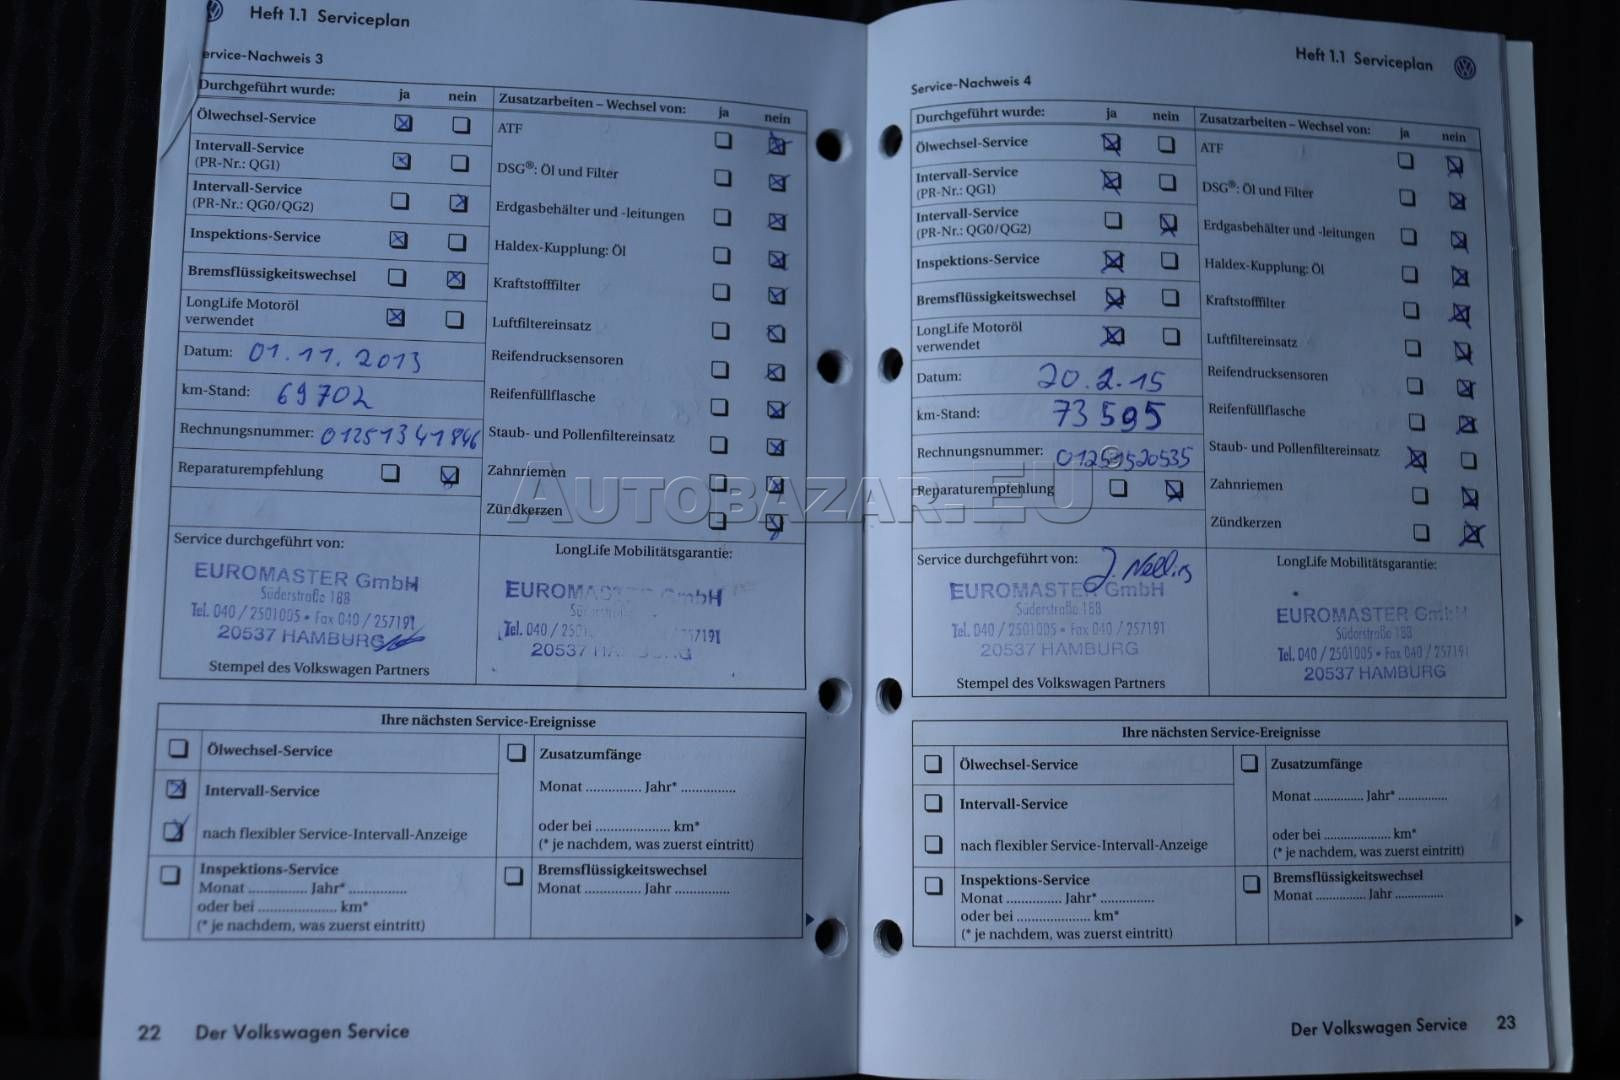 Heft 1.1 Serviceplan
ervice-Nachweis 3
Durchgeführt wurde: ja nein
Ölwechsel-Service
Intervall-Service
(PR-Nr.: QG1)
Intervall-Service
(PR-Nr.: QG0/QG2)
Inspektions-Service
Bremsflüssigkeitswechsel
LongLife Motoröl
verwendet
Datum: 01.11.2013
km-Stand: 69702
Rechnungsnummer: 01251341846
Reparaturempfehlung
Zusatzarbeiten – Wechsel von: ja nein
ATF
DSG®: Öl und Filter
Erdgasbehälter und -leitungen
Haldex-Kupplung: Öl
Kraftstofffilter
Luftfiltereinsatz
Reifendrucksensoren
Reifenfüllflasche
Staub- und Pollenfiltereinsatz
Zahnriemen
Zündkerzen
Service durchgeführt von:
EUROMASTER GmbH
Süderstraße 188
Tel. 040 / 2501005 • Fax 040 / 257191
20537 HAMBURG
Stempel des Volkswagen Partners
LongLife Mobilitätsgarantie:
EUROMASTER GmbH
Tel. 040 / 257191
20537
Ihre nächsten Service-Ereignisse
Ölwechsel-Service
Intervall-Service
nach flexibler Service-Intervall-Anzeige
Inspektions-Service
Monat ............... Jahr* ...............
oder bei .................... km*
(* je nachdem, was zuerst eintritt)
Zusatzumfänge
Monat .............. Jahr* ..............
oder bei .................... km*
(* je nachdem, was zuerst eintritt)
Bremsflüssigkeitswechsel
Monat .............. Jahr ..............
22 Der Volkswagen Service
Heft 1.1 Serviceplan
Service-Nachweis 4
Durchgeführt wurde: ja nein
Ölwechsel-Service
Intervall-Service
(PR-Nr.: QG1)
Intervall-Service
(PR-Nr.: QG0/QG2)
Inspektions-Service
Bremsflüssigkeitswechsel
LongLife Motoröl
verwendet
Datum: 20.2.15
km-Stand: 73595
Rechnungsnummer: 01251520535
Reparaturempfehlung
Zusatzarbeiten – Wechsel von: ja nein
ATF
DSG®: Öl und Filter
Erdgasbehälter und -leitungen
Haldex-Kupplung: Öl
Kraftstofffilter
Luftfiltereinsatz
Reifendrucksensoren
Reifenfüllflasche
Staub- und Pollenfiltereinsatz
Zahnriemen
Zündkerzen
Service durchgeführt von:
EUROMASTER GmbH
Süderstraße 188
Tel. 040 / 2501005 • Fax 040 / 257191
20537 HAMBURG
Stempel des Volkswagen Partners
LongLife Mobilitätsgarantie:
EUROMASTER GmbH
Süderstraße 188
Tel. 040 / 2501005 • Fax 040 / 257191
20537 HAMBURG
Ihre nächsten Service-Ereignisse
Ölwechsel-Service
Intervall-Service
nach flexibler Service-Intervall-Anzeige
Inspektions-Service
Monat .............. Jahr* ..............
oder bei .................... km*
(* je nachdem, was zuerst eintritt)
Zusatzumfänge
Monat .............. Jahr* ..............
oder bei .................... km*
(* je nachdem, was zuerst eintritt)
Bremsflüssigkeitswechsel
Monat .............. Jahr ..............
Der Volkswagen Service 23
AUTOBAZAR.EU